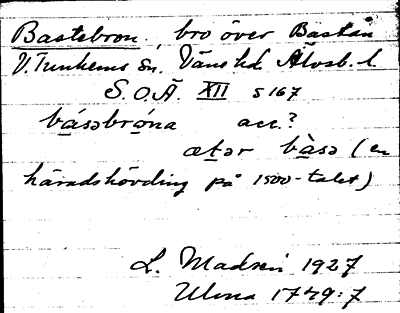 Bastebron, bro över Bastån
V. Tunhems sn. Väne hd. Älvsb. l.
S.O.Ä. XII s 167
básəbróna acc.?
ætər bàsə (en
häradshövding på 1500-talet)
L. Madsén 1927
Ulma 1749:7